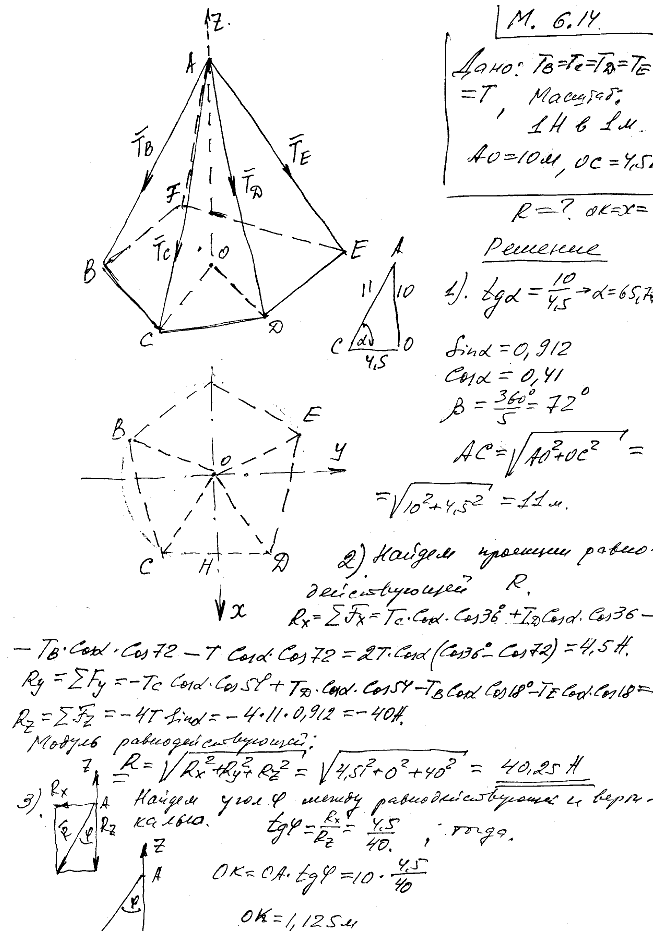 М. 6.14
Z
A
Дано: T_B=T_C=T_D=T_E
=T, Масштаб.
1Н в 1м.
AO=10м, OC=4,5
R=? OK=x=
T̄_B
T̄_E
T̄_D
F
T̄_C
O
B
E
C
D
Решение
A
11
10
α
C
4,5
O
1). tgα = 10/4,5 → α=65,7
Sinα = 0,912
Cosα = 0,41
β = 360°/5 = 72°
AC = √(AO²+OC²) =
= √(10²+4,5²) = 11м.
B
E
O
y
C
H
D
x
2) Найдем проекции равно-
действующей R.
Rx = ΣF̄x = Tc·Cosα·Cos36°+T_D Cosα·Cos36 –
– T_B·Cosα·Cos72 – T Cosα·Cos72 = 2T·Cosα(Cos36°–Cos72) = 4,5Н.
Ry = ΣFy = –Tc Cosα·Cos54+T_D·Cosα·Cos54–T_B Cosα Cos18°–T_E Cosα·Cos18=
Rz = ΣF̄z = –4T Sinα = –4·11·0,912 = –40Н.
Модуль равнодействующей:
R = √(Rx²+Ry²+Rz²) = √(4,5²+0²+40²) = 40,25 Н
3)
Z
Rx
A
R
φ
Rz
Найдем угол φ между равнодействующей и верти-
калью.
tgφ = Rx/Rz = 4,5/40. ; тогда.
Z
A
φ
OK = OA·tgφ = 10·4,5/40
OK = 1,125м